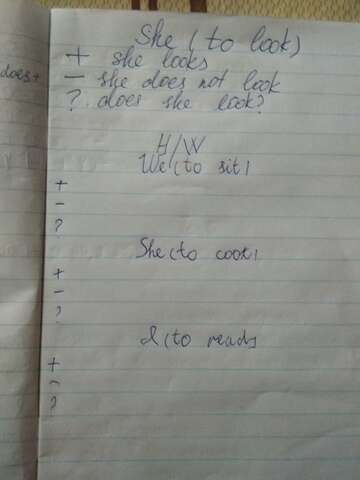 She (to look)
+ she looks
does+
- she does not look
? does she look?
H/W
We (to sit)
+
-
?
She (to cook)
+
-
?
I (to read)
+
-
?